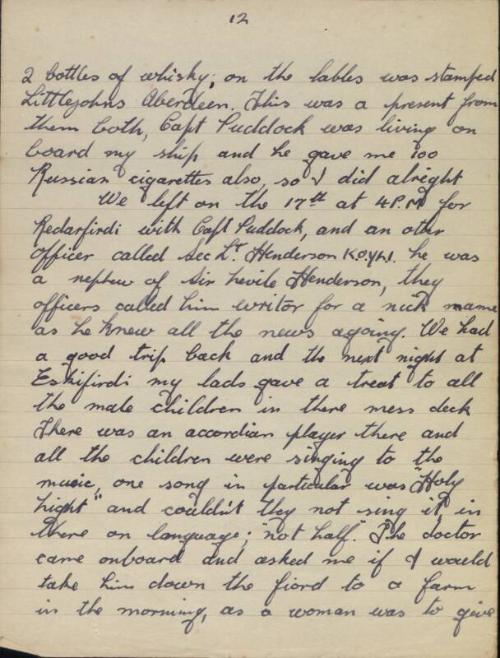 12
2 bottles of whisky; on the lables was stamped
Littlejohns Aberdeen. This was a present from
them both, Capt Puddock was living on
board my ship and he gave me 100
Russian cigarettes also, so I did alright
We left on the 17th at 4P.M for
Redarfirdi with Capt Puddock, and an other
officer called Sec Lt. Henderson K.O.Y.L.I. he was
a nephew of Sir Nevile Henderson, they
officers called him writor for a nick name
as he knew all the news agoing. We had
a good trip back and the next night at
Eskifirdi my lads gave a treat to all
the male children in there mess deck
There was an accordian player there and
all the children were singing to the
music, one song in particular was "Holy
night" and couldn't they not sing it, in
there on language; "not half." The doctor
came onboard and asked me if I would
take him down the fiord to a farm
in the morning, as a woman was to give